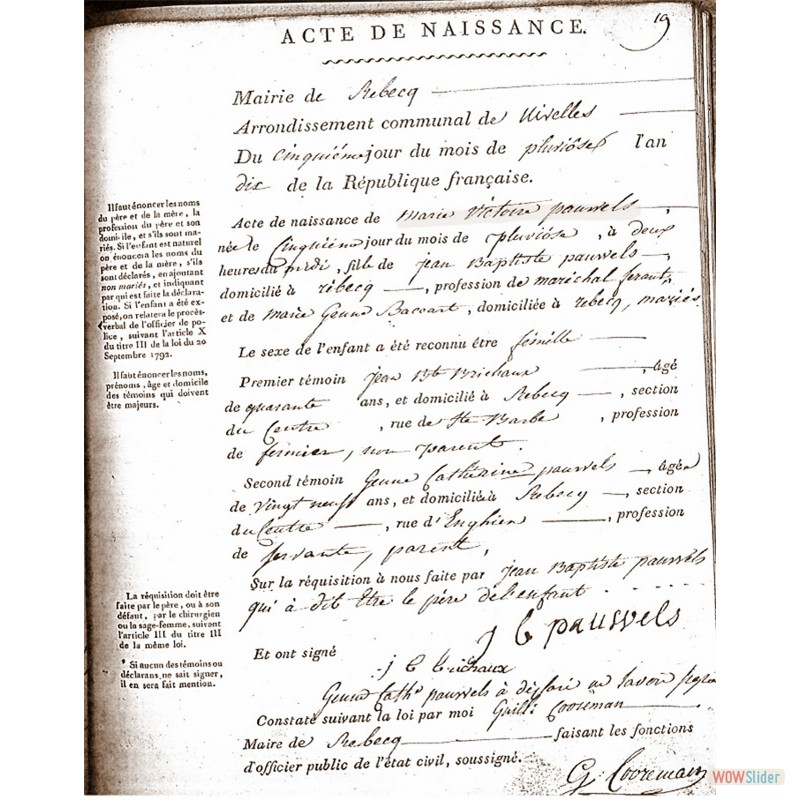 19
ACTE DE NAISSANCE.
Mairie de Rebecq
Arrondissement communal de Nivelles
Du cinquième jour du mois de pluviôse l'an
dix de la République française.
Il faut énoncer les noms
du père et de la mère, la
profession du père et son
domicile, et s'ils sont ma-
riés. Si l'enfant est naturel
on énoncera les noms du
père et de la mère, s'ils
sont déclarés, en ajoutant
non mariés, et indiquant
par qui est faite la déclara-
tion. Si l'enfant a été ex-
posé, on relatera le procès-
verbal de l'officier de po-
lice, suivant l'article X
du titre III de la loi du 20
Septembre 1792.
Il faut énoncer les noms,
prénoms, âge et domicile
des témoins qui doivent
être majeurs.
Acte de naissance de Marie Victoire pauwels,
née le Cinquième jour du mois de pluviôse, à deux
heures du midi, fille de jean Baptiste pauwels
domicilié à rebecq, profession de maréchal ferant,
et de Marie Baccart, domiciliée à rebecq, mariés
Le sexe de l'enfant a été reconnu être fémelle
Premier témoin jean Bte Brichaux, âgé
de quarante ans, et domicilié à Rebecq, section
du Centre, rue de Ste Barbe, profession
de fermier, non parent.
Second témoin Catherine pauwels, âgée
de vingt neuf ans, et domiciliée à Rebecq, section
du Centre, rue d'Enghien, profession
de servante, parent,
La réquisition doit être
faite par le père, ou à son
défaut, par le chirurgien
ou la sage-femme, suivant
l'article III du titre III
de la même loi.
* Si aucun des témoins ou
déclarans ne sait signer,
il en sera fait mention.
Sur la réquisition à nous faite par jean Baptiste pauwels
qui à dit Etre le père de l'enfant
j b pauwels
Et ont signé
j b brichaux
Cathe pauwels à déclaré ne savoir
Constaté suivant la loi par moi Cooreman
Maire de Rebecq faisant les fonctions
d'officier public de l'état civil, soussigné.
G. Cooreman
WOWSlider